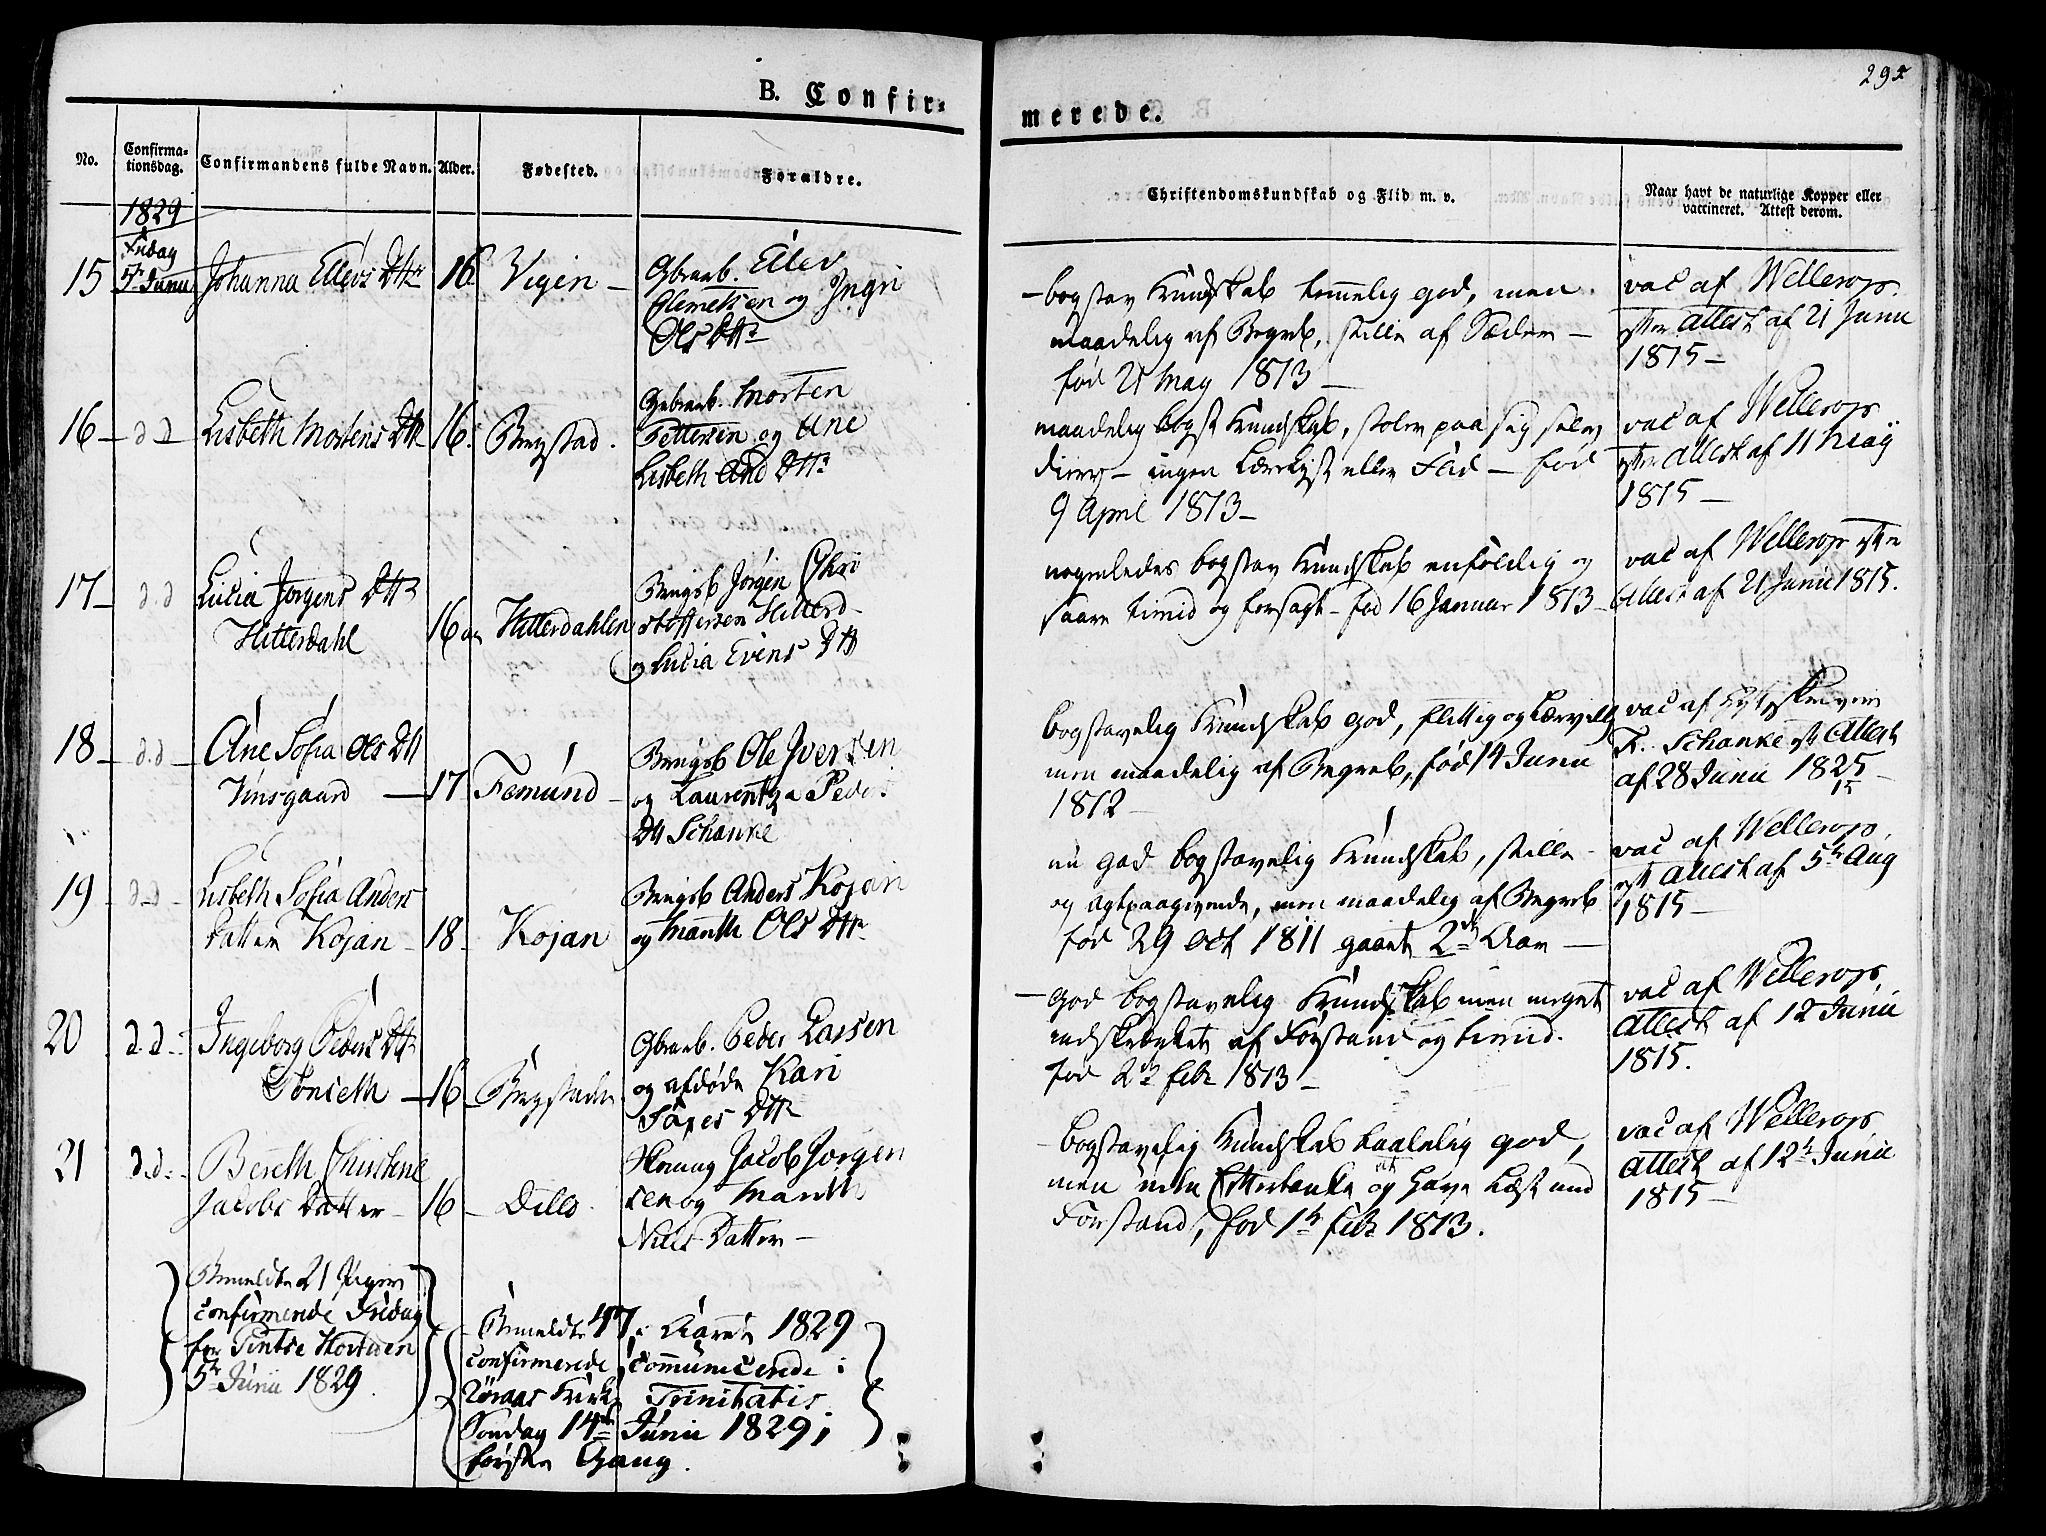 B. Confir=
merede.
295
No.
Confirma=
tionsdag.
Confirmandens fulde Navn.
Alder.
Fødested.
Forældre.
Christendomskundskab og Flid m. v.
Naar havt de naturlige Kopper eller
vaccineret. Attest derom.
1829
Fredag
5te Junii
15
Johanna Ellevs Dttr
16
Vigen
Gbrarb. Ellev
Clemetsen og Ingri
Ols Dttr
bogstav Kundskab temmelig god, men
maadelig af Begreb, stille af Sæder
fød 21 May 1813
vac af Wellerop
efter Attest af 21 Junii
1815
16
d d
Lisbeth Mortens Dttr
16
Bergstad.
Gebrarb. Morten
Pettersen og Ane
Lisbeth And Dttr
maadelig bogst Kundskab, stoler paa sig selv
ingen Lærelyst eller Flid fød
9 April 1813
vac af Wellerop
efter Attest af 11 May
1815
17
d. d
Lucia Jørgens Dttr
Hitterdahl
16
Hitterdahlen
Bergsb Jørgen Chri
stoffersen Hitterd
og Lucia Evens Dttr
nogenledes bogstav Kundskab enfoldig og
saare timid og forsagt fød 16 Januar 1813
vac af Wellerop efter
Attest af 21 Junii 1815.
18
d. d
Ane Sofia Ols Dtt
Vinsgaard
17
Femund
Bergsb Ole Iversen
og Laurentza Peders
Dtt Schanke
bogstavelig Kundskab god, flittig og Lærvillig
men maadelig af Begreb, fød 14 Junii
1812
vac af
Schanke eft Attest
af 28 Junii 1825
15
19
d. d
Lisbeth Sofia Anders
Datter Kojan
18
Kojan
Bergsb Anders Kojan
og Marith Ols Dttr
nu god bogstavelig Kundskab, stille
og agtpaagivende, men maadelig af Begreb
fød 29 Oct 1811 gaaet 2de Aar
vac af Wellerop
eft Attest af 5te Aug
1815
20
d. d.
Ingeborg Peders Dttr
Tønseth
16
Bergstaden
Gbrarb. Peder Larsen
og afdøde Kari
Dttr
god bogstavelig Kundskab men meget
indskrænket af Forstand og timid.
fød 2de Febr 1813
vac af Wellerop
Attest af 12 Junii
1815.
21
d. d.
Bereth Christene
Jacobs Datter
16
Jacob Jørgen
sen og Marith
Niels Datter
bogstavelig Kundskab taalelig god,
men uden Eftertanke og Gave Læst med
Forstand, fød 1te Febr 1813.
vac af Wellerop
Attest af 12te Junii
1815
Bemeldte 21 Piger
confirmerede Fredag
før Pintse Høitiden
5te Junii 1829
Bemeldte 47 i Aaret 1829
confirmerede, communicerede i
Røraas Kirke Trinitatis
Søndag 14de Junii 1829 i
første Gang.